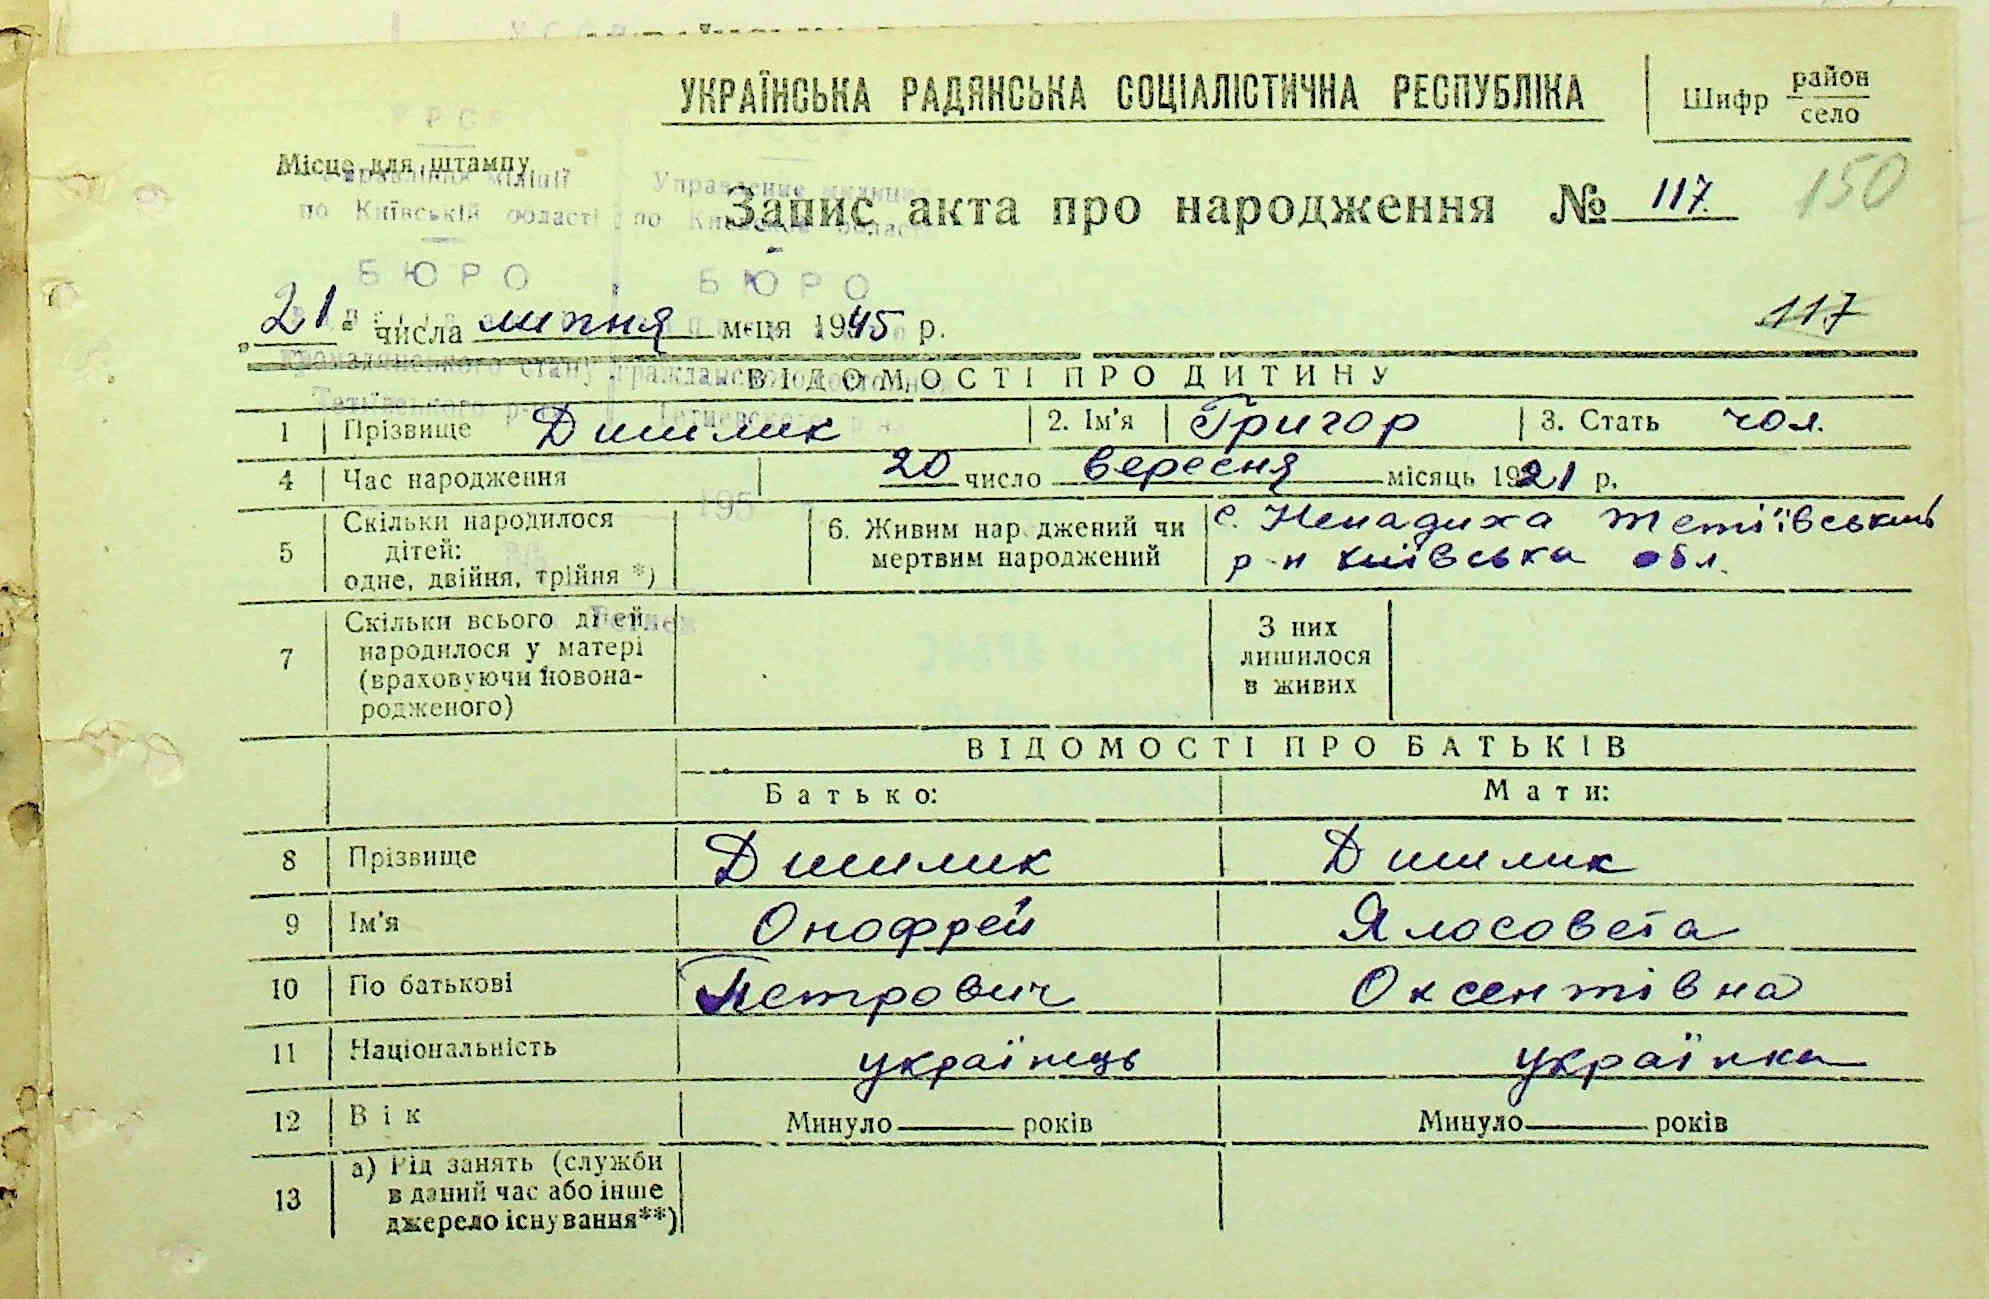 УКРАЇНСЬКА РАДЯНСЬКА СОЦІАЛІСТИЧНА РЕСПУБЛІКА
Шифр район
село
Місце для штампу
УРСР
Управління міліції Управление милиции
по Київській області по Киевской области
БЮРО БЮРО
Запис акта про народження № 117.
150
"21" числа липня м-ця 1945 р.
117
громадянського стану гражданского
Тетіївського р-ну Тетиевского р-на
ВІДОМОСТІ ПРО ДИТИНУ
1 Прізвище Дишлик 2. Ім'я Григор 3. Стать чол.
4 Час народження 20 число вересня місяць 1921 р.
195
5 Скільки народилося
дітей:
одне, двійня, трійня *)
6. Живим народжений чи
мертвим народжений
с. Ненадиха Тетіївський
р-н Київська обл.
7 Скільки всього дітей
народилося у матері
(враховуючи новона-
родженого)
З них
лишилося
в живих
ВІДОМОСТІ ПРО БАТЬКІВ
Батько: Мати:
8 Прізвище Дишлик Дишлик
9 Ім'я Онофрей Ялосовета
10 По батькові Петрович Оксентівна
11 Національність українець українка
12 Вік Минуло років Минуло років
13 а) Рід занять (служби
в даний час або інше
джерело існування**)